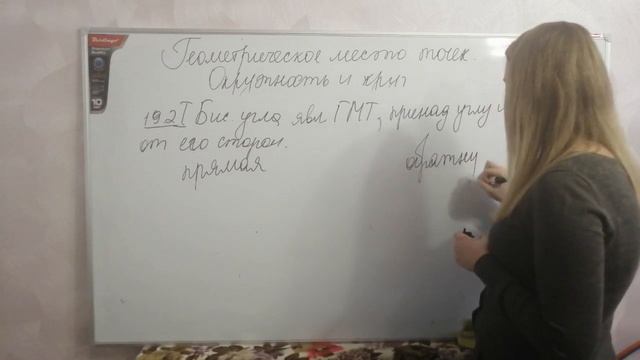 Геометрическое место точек.
Окружность и круг
19.2Т Бис. угла явл ГМТ, принад углу и
от его сторон.
прямая
обратну
10